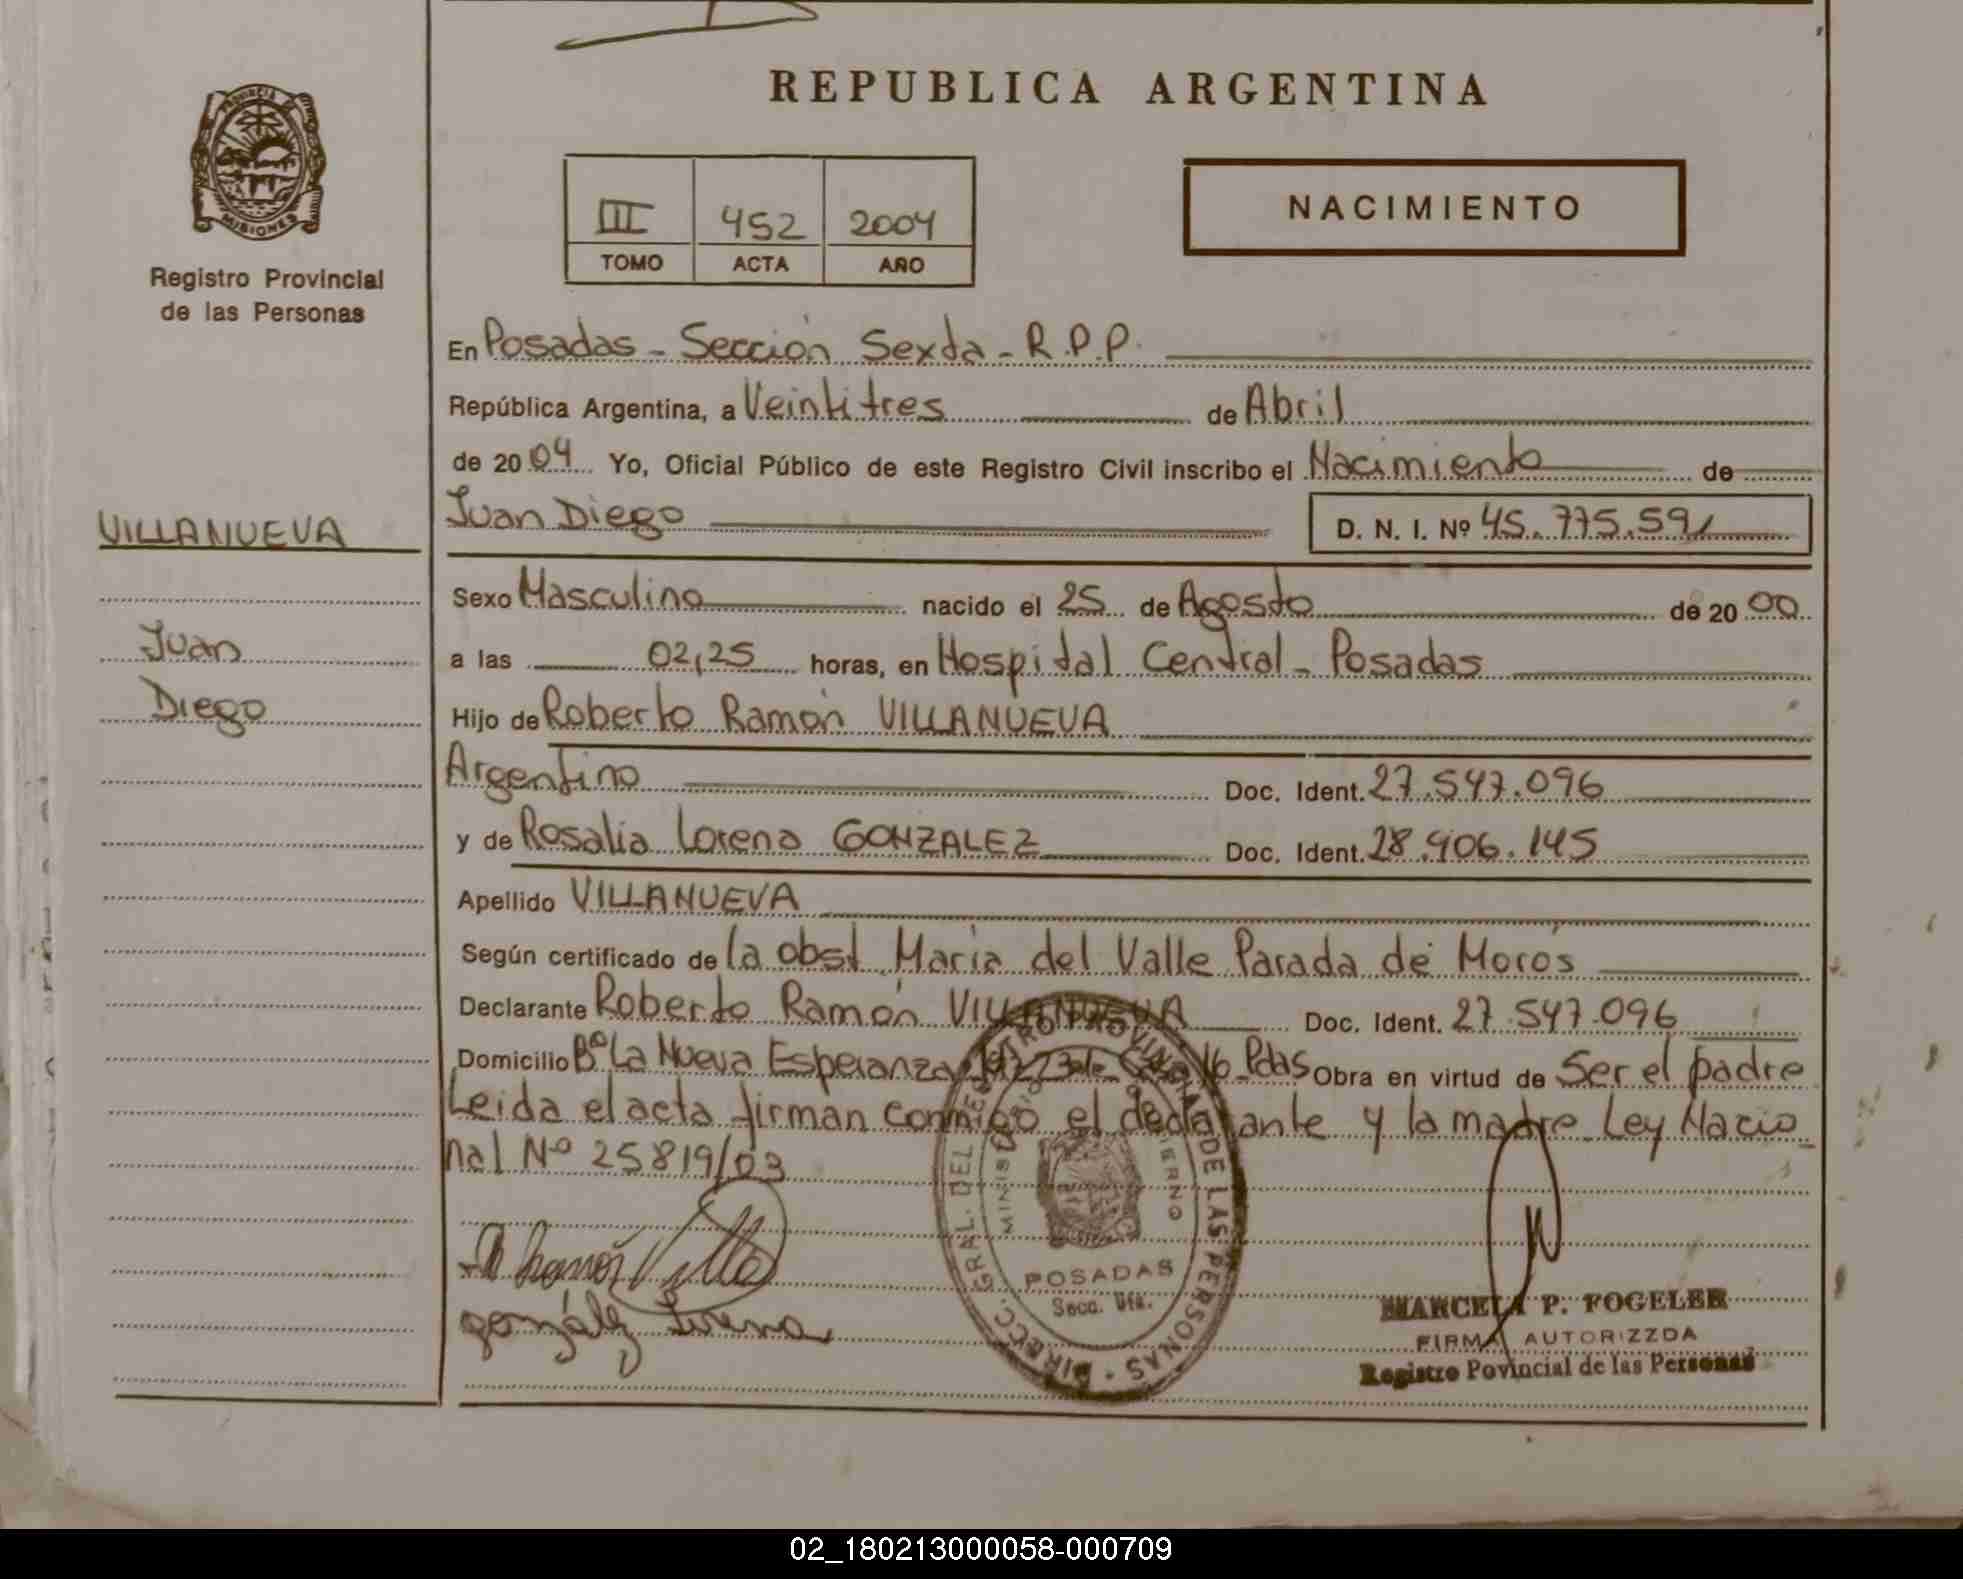 REPUBLICA ARGENTINA
PROVINCIA DE
MISIONES
Registro Provincial
de las Personas
III 452 2004
TOMO ACTA AÑO
NACIMIENTO
En Posadas - Sección Sexta - R.P.P.
República Argentina, a Veintitres de Abril
de 2004 Yo, Oficial Público de este Registro Civil inscribo el Nacimiento de
VILLANUEVA
Juan Diego
D. N. I. Nº 45.775.591
Sexo Masculino nacido el 25 de Agosto de 2000
Juan
a las 02,25 horas, en Hospital Central - Posadas
Diego
Hijo de Roberto Ramón VILLANUEVA
Argentino Doc. Ident. 27.547.096
y de Rosalia Lorena GONZALEZ Doc. Ident. 28.406.145
Apellido VILLANUEVA
Según certificado de la obst María del Valle Parada de Moros
Declarante Roberto Ramón VILLANUEVA Doc. Ident. 27.547.096
Domicilio Bº La Nueva Esperanza 16 Pdas Obra en virtud de Ser el padre
Leida el acta firman conmigo el declarante y la madre Ley Nacio
nal Nº 25819/03
Ramón Villa
gonzález Lorena
DIRECC. GRAL. DEL REGISTRO PROVINCIAL DE LAS PERSONAS
POSADAS
Secc.
MARCELA P. FOGELER
FIRMA AUTORIZZDA
Registro Povincial de las Personas
02_180213000058-000709